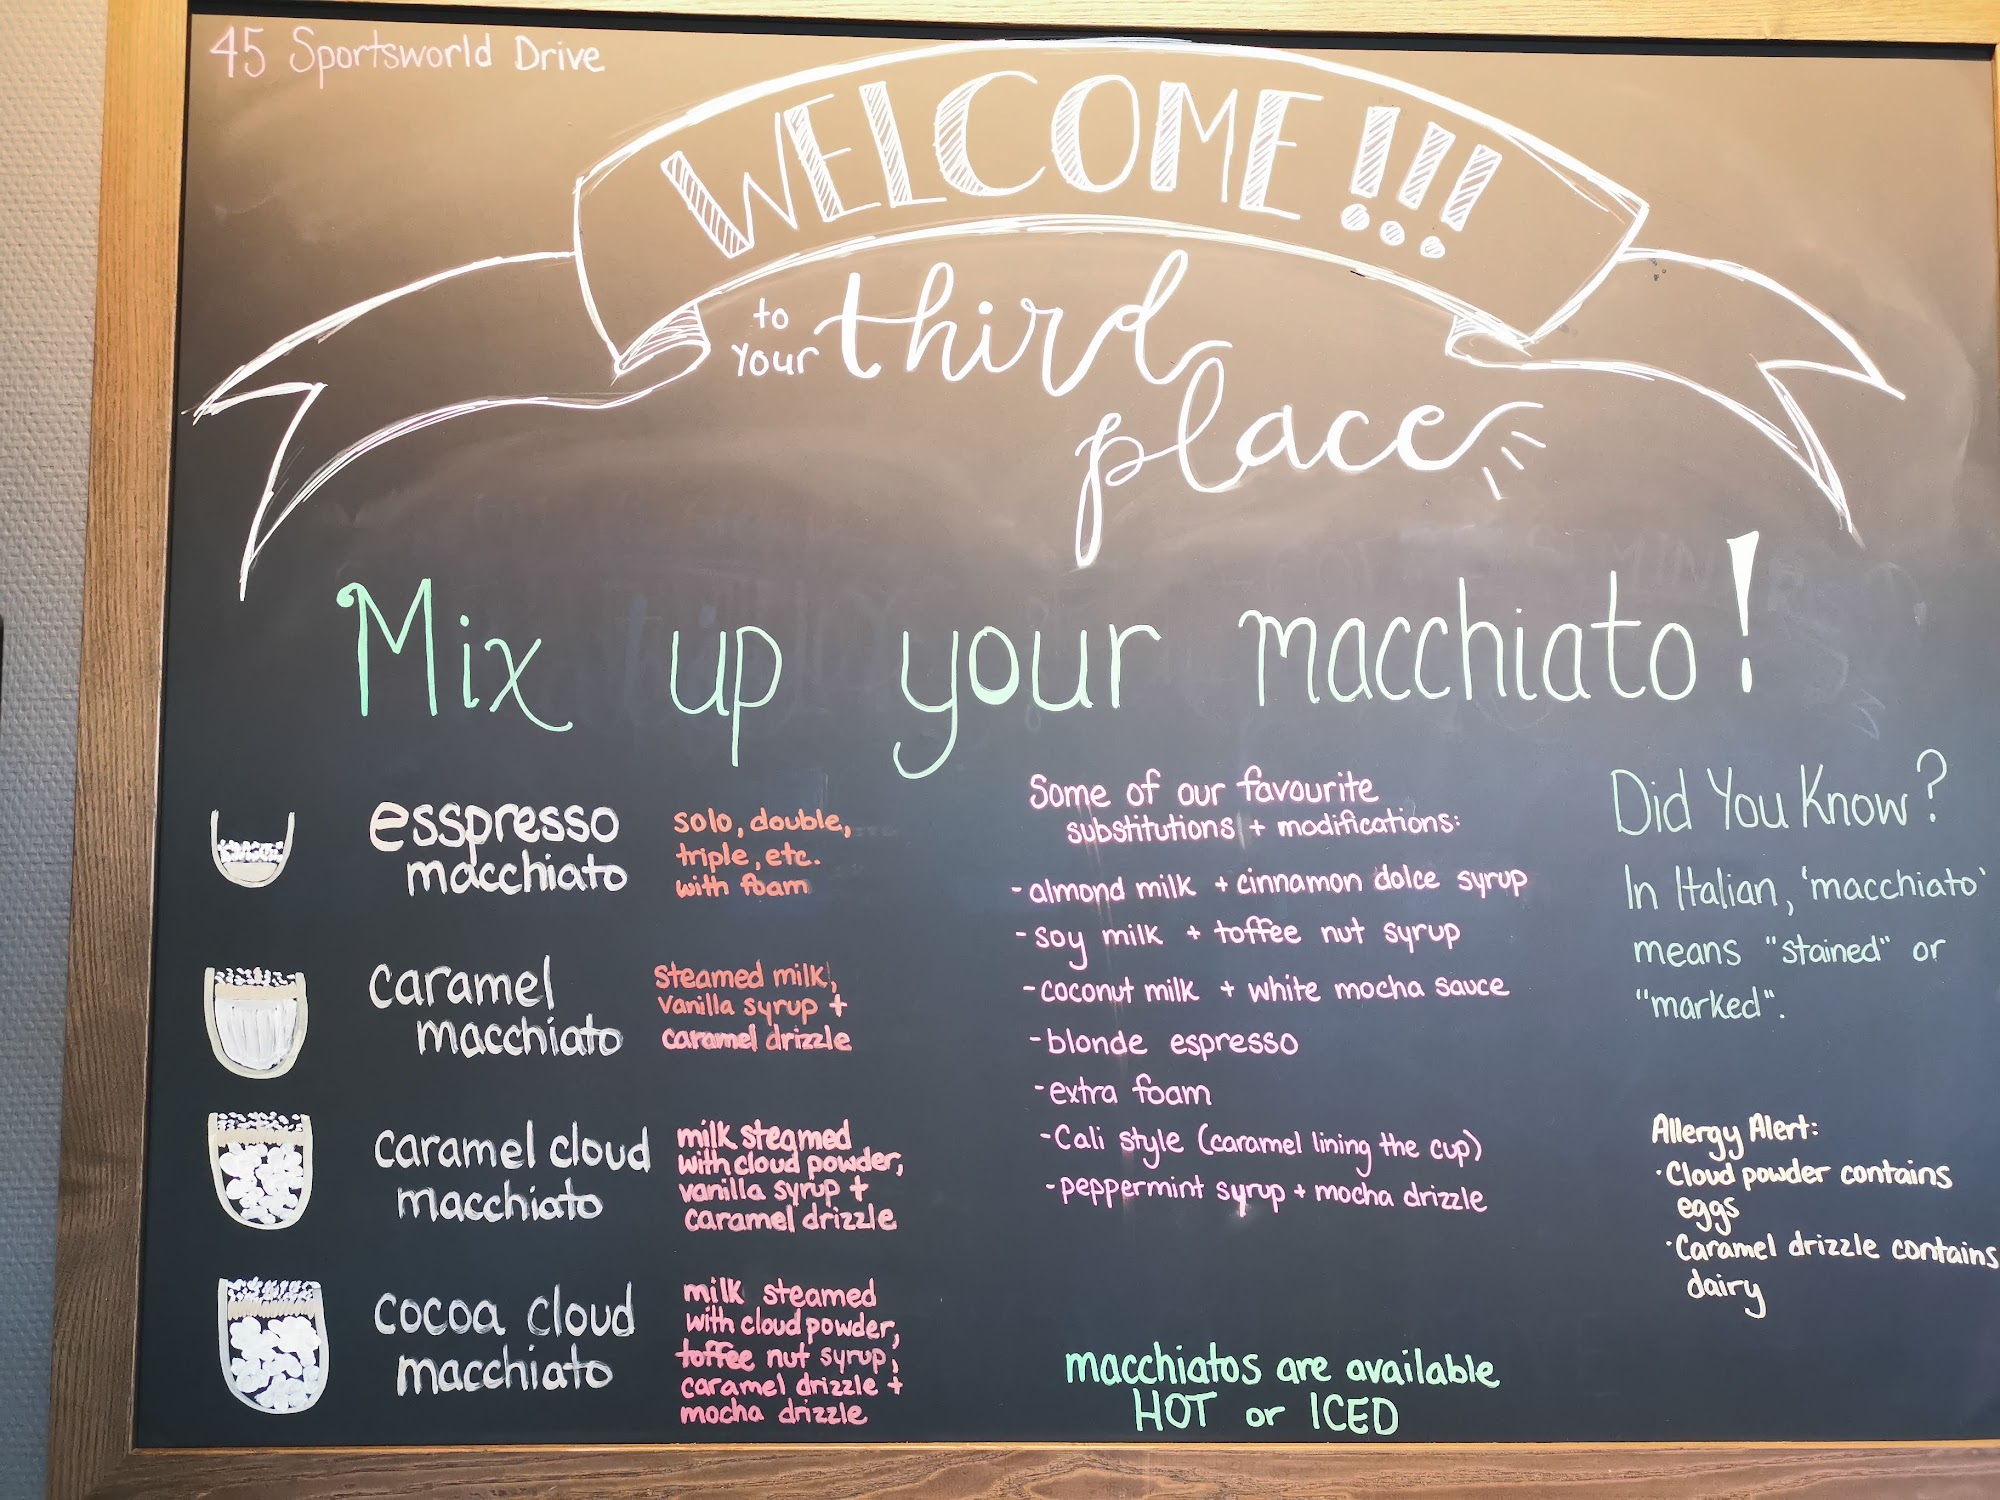 45 Sportsworld Drive
WELCOME!!!
to
your third
place
Mix up your macchiato!
esspresso
macchiato
solo, double,
triple, etc.
with foam
caramel
macchiato
steamed milk,
vanilla syrup +
caramel drizzle
caramel cloud
macchiato
milk steamed
with cloud powder,
vanilla syrup +
caramel drizzle
cocoa cloud
macchiato
milk steamed
with cloud powder,
toffee nut syrup,
caramel drizzle +
mocha drizzle
Some of our favourite
substitutions + modifications:
- almond milk + cinnamon dolce syrup
- soy milk + toffee nut syrup
- coconut milk + white mocha sauce
- blonde espresso
- extra foam
- Cali style (caramel lining the cup)
- peppermint syrup + mocha drizzle
macchiatos are available
HOT or ICED
Did You Know?
In Italian, 'macchiato'
means "stained" or
"marked".
Allergy Alert:
· Cloud powder contains
eggs
· Caramel drizzle contains
dairy